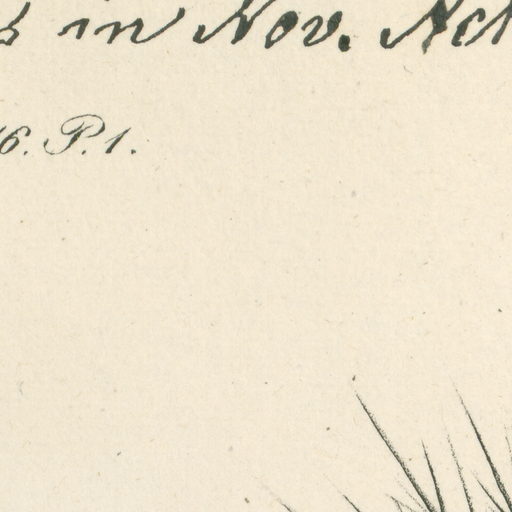 in Nov. Act
6. P. 1.